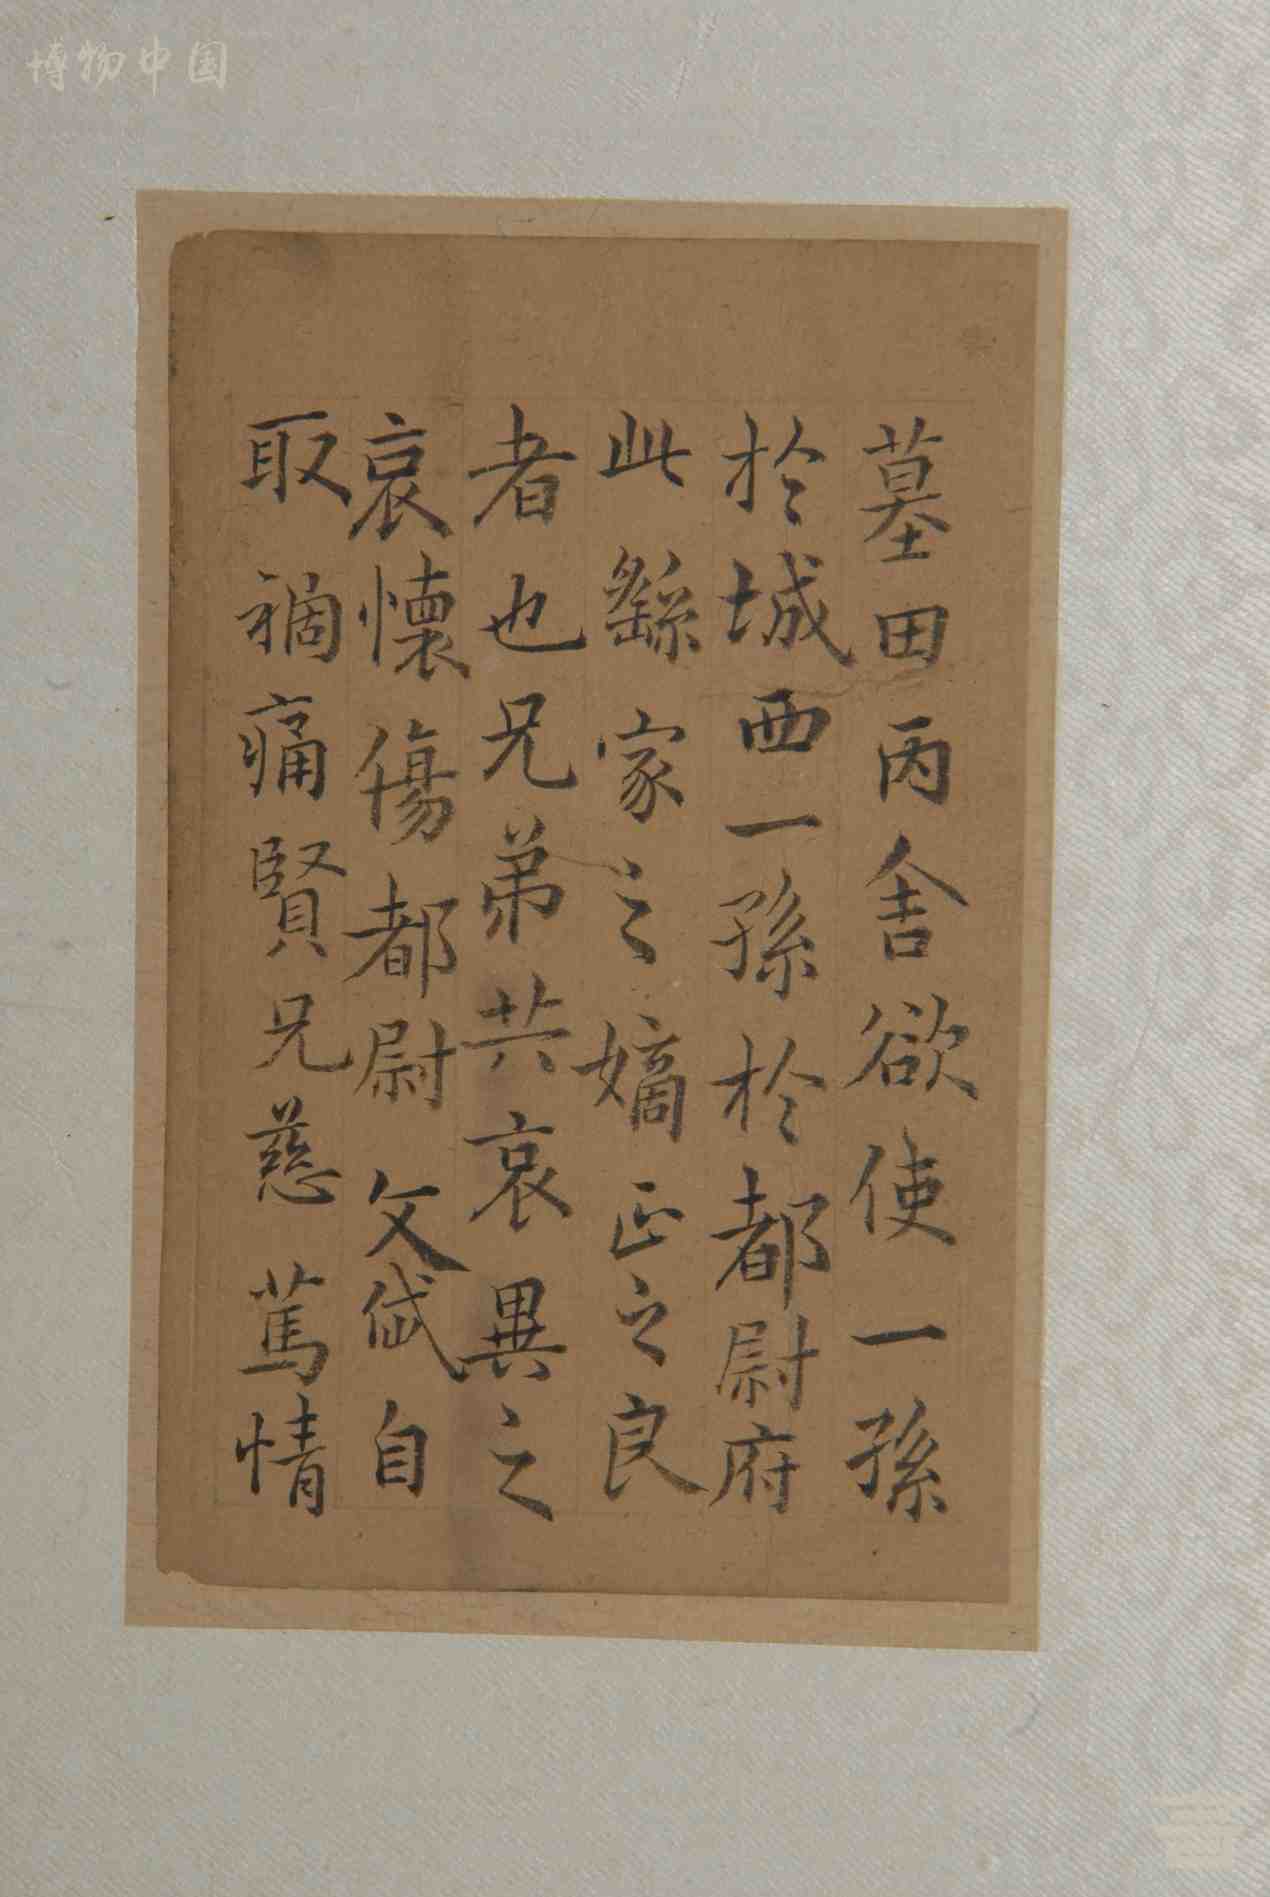 博物中国
墓田丙舍欲使一孫
於城西一孫於都尉府
此繇家之嫡正之良
者也兄弟共哀異之
哀懷傷都尉文岱自
取禍痛賢兄慈篤情